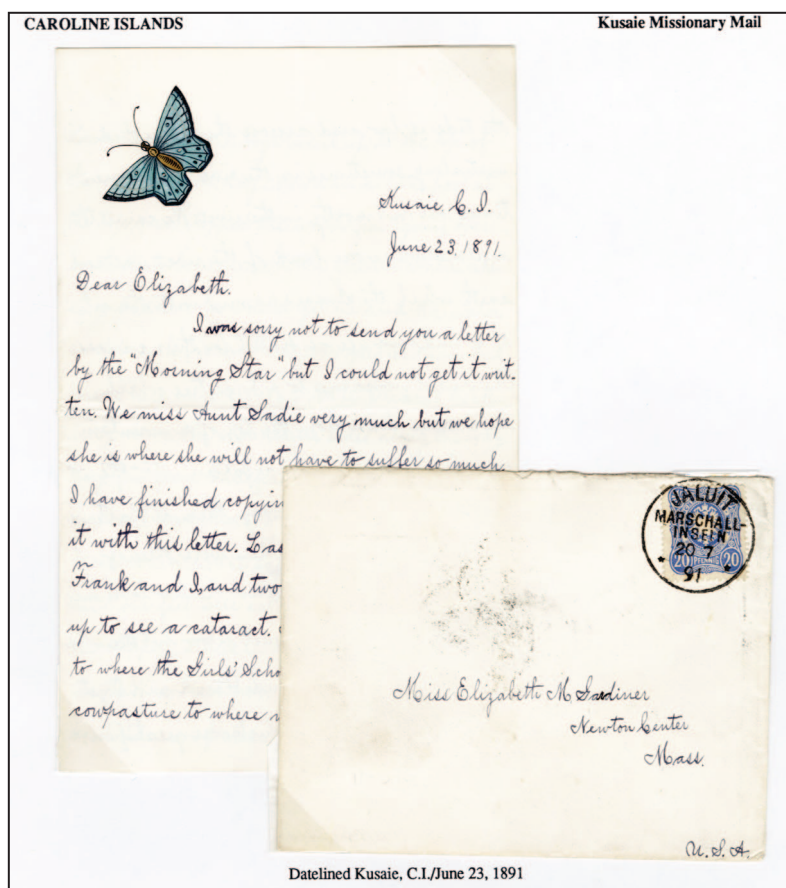 CAROLINE ISLANDS
Kusaie Missionary Mail
Kusaie, C. I.
June 23, 1891.
Dear Elizabeth.
I was sorry not to send you a letter
by the "Morning Star" but I could not get it writ-
ten. We miss Aunt Sadie very much but we hope
she is where she will not have to suffer so much.
I have finished copyin
it with this letter. Las
Frank and I, and two
up to see a cataract.
to where the Girls' Scho
cowpasture to where
JALUIT
MARSCHALL-
INSELN
20 7
91
20 PFENNIG 20
Miss Elizabeth M Gardiner
Newton Center
Mass.
U. S. A.
Datelined Kusaie, C.I./June 23, 1891